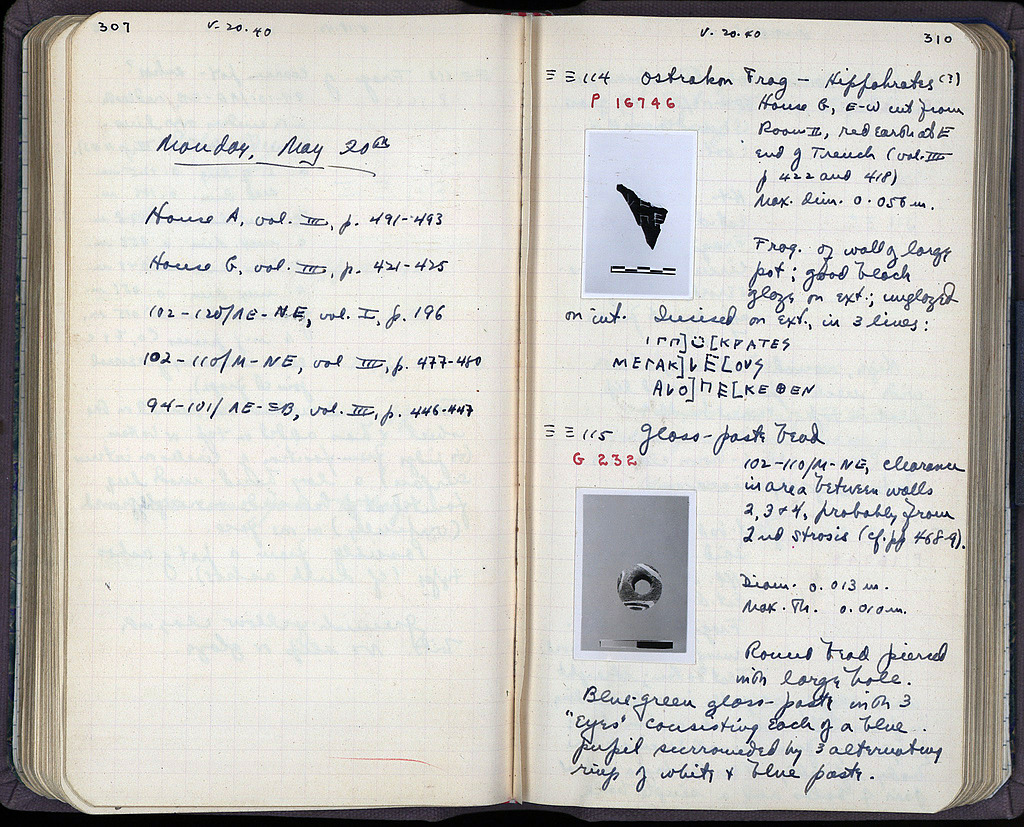 307
V-20-40
Monday, May 20th
House A, vol. III, p. 491-493
House G, vol. III, p. 421-425
102-120/ΛE-NE, vol. I, p. 196
102-110/M-NE, vol III, p. 477-480
94-101/ΛE-ΞB, vol. III, p. 446-447
V-20-40
310
Ξ Ξ 114 Ostrakon Frag - Hippokrates (?)
P 16746
House G, E-W cut from
Room II, red earth at E
end of Trench (vol. III
p 422 and 418)
Max. dim. 0.056 m.
Frag. of wall of large
pot; good black
glaze on ext.; unglazed
on int. Incised on ext., in 3 lines:
ΙΠΠ]Ο[ΚΡΑΤΕS
ΜΕΓΑΚ]LΕ[ΟVS
ΑLΟ]ΠΕ[ΚΕΘΕΝ
Ξ Ξ 115 Glass-paste bead
G 232
102-110/M-NE, clearance
in area between walls
2, 3 + 4, probably from
2nd strosis (cf. pp 468-9).
Diam. 0.013 m.
Max. Th. 0.010 m.
Round bead pierced
with large hole.
Blue-green glass-paste with 3
"eyes" consisting each of a blue
pupil surrounded by 3 alternating
rings of white + blue paste.